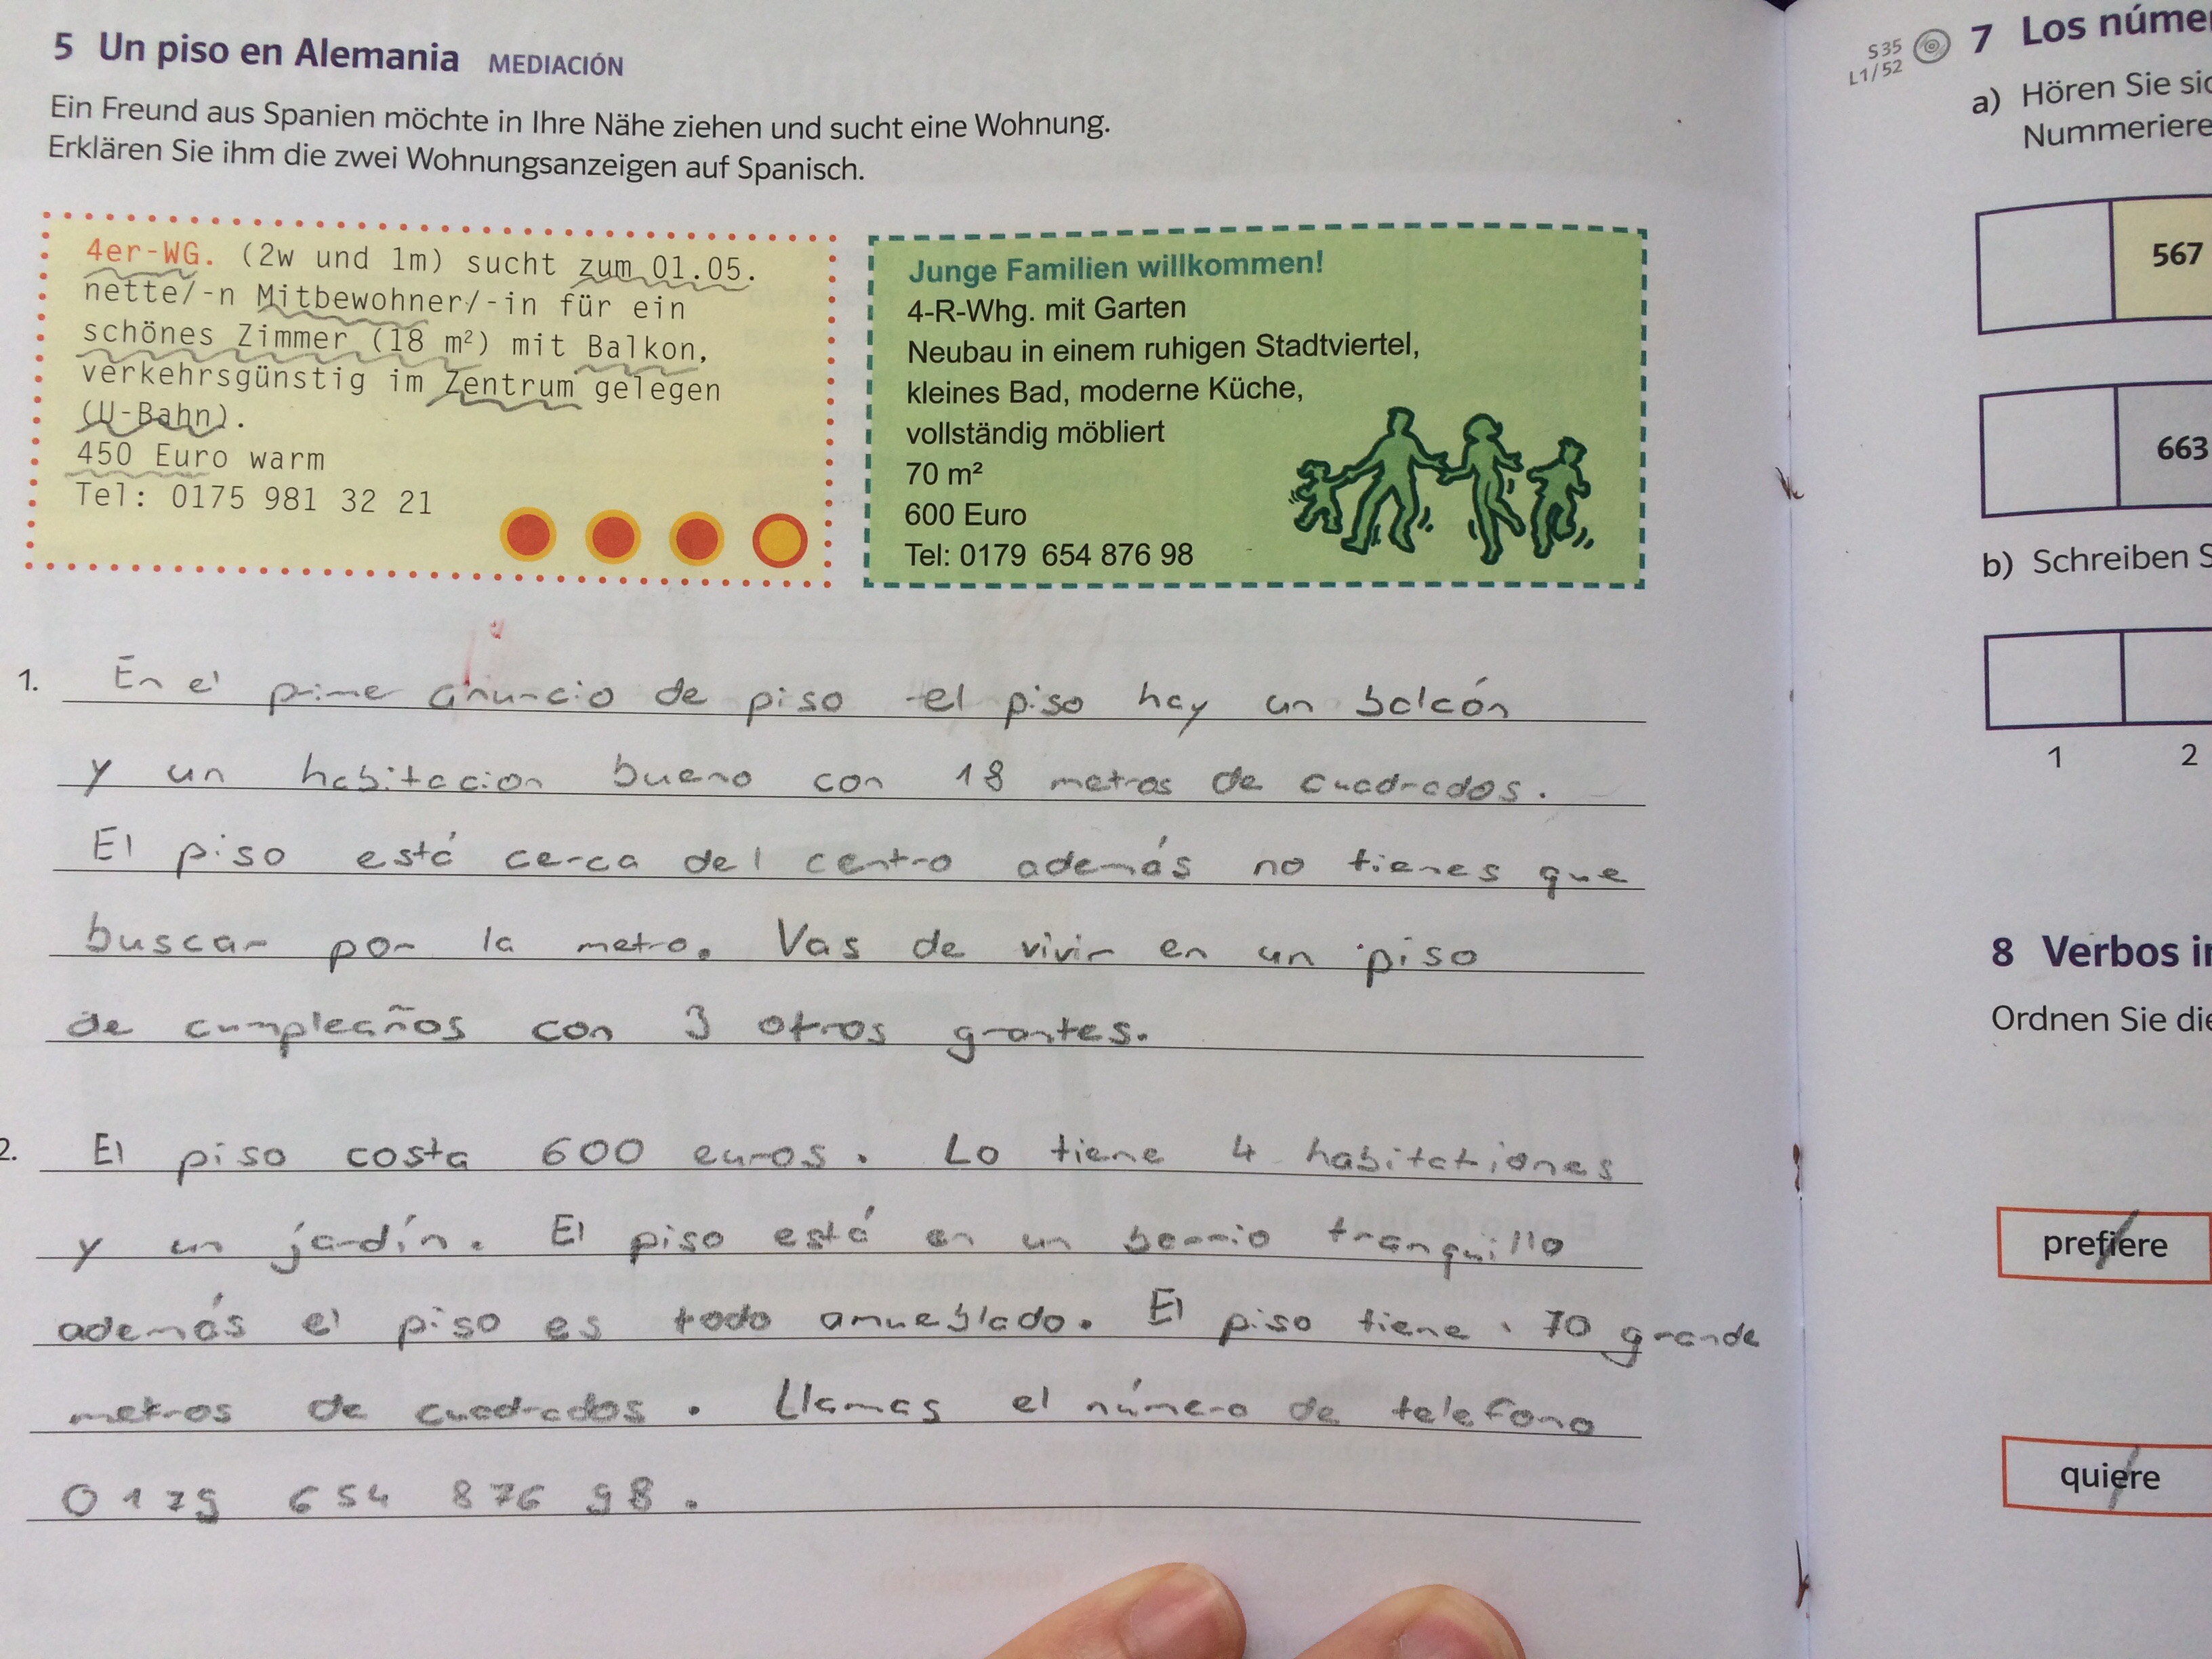 5 Un piso en Alemania MEDIACIÓN
Ein Freund aus Spanien möchte in Ihre Nähe ziehen und sucht eine Wohnung.
Erklären Sie ihm die zwei Wohnungsanzeigen auf Spanisch.
4er-WG. (2w und 1m) sucht zum 01.05.
nette/-n Mitbewohner/-in für ein
schönes Zimmer (18 m²) mit Balkon,
verkehrsgünstig im Zentrum gelegen
(U-Bahn).
450 Euro warm
Tel: 0175 981 32 21
Junge Familien willkommen!
4-R-Whg. mit Garten
Neubau in einem ruhigen Stadtviertel,
kleines Bad, moderne Küche,
vollständig möbliert
70 m²
600 Euro
Tel: 0179 654 876 98
1. En el prime anuncio de piso el piso hay un balcón
y un habitacion bueno con 18 metros de cuadrados.
El piso está cerca del centro además no tienes que
buscar por la metro. Vas de vivir en un piso
de cumpleaños con 3 otros grantes.
2. El piso costa 600 euros. Lo tiene 4 habitationes
y un jardín. El piso está en un barrio tranquillo
además el piso es todo amueblado. El piso tiene 70 grande
metros de cuadrados. Llamas el número de telefono
0179 654 876 98.
S35
L1/52
7 Los núme
a) Hören Sie sic
Nummeriere
567
663
b) Schreiben S
1 2
8 Verbos i
Ordnen Sie die
prefiere
quiere